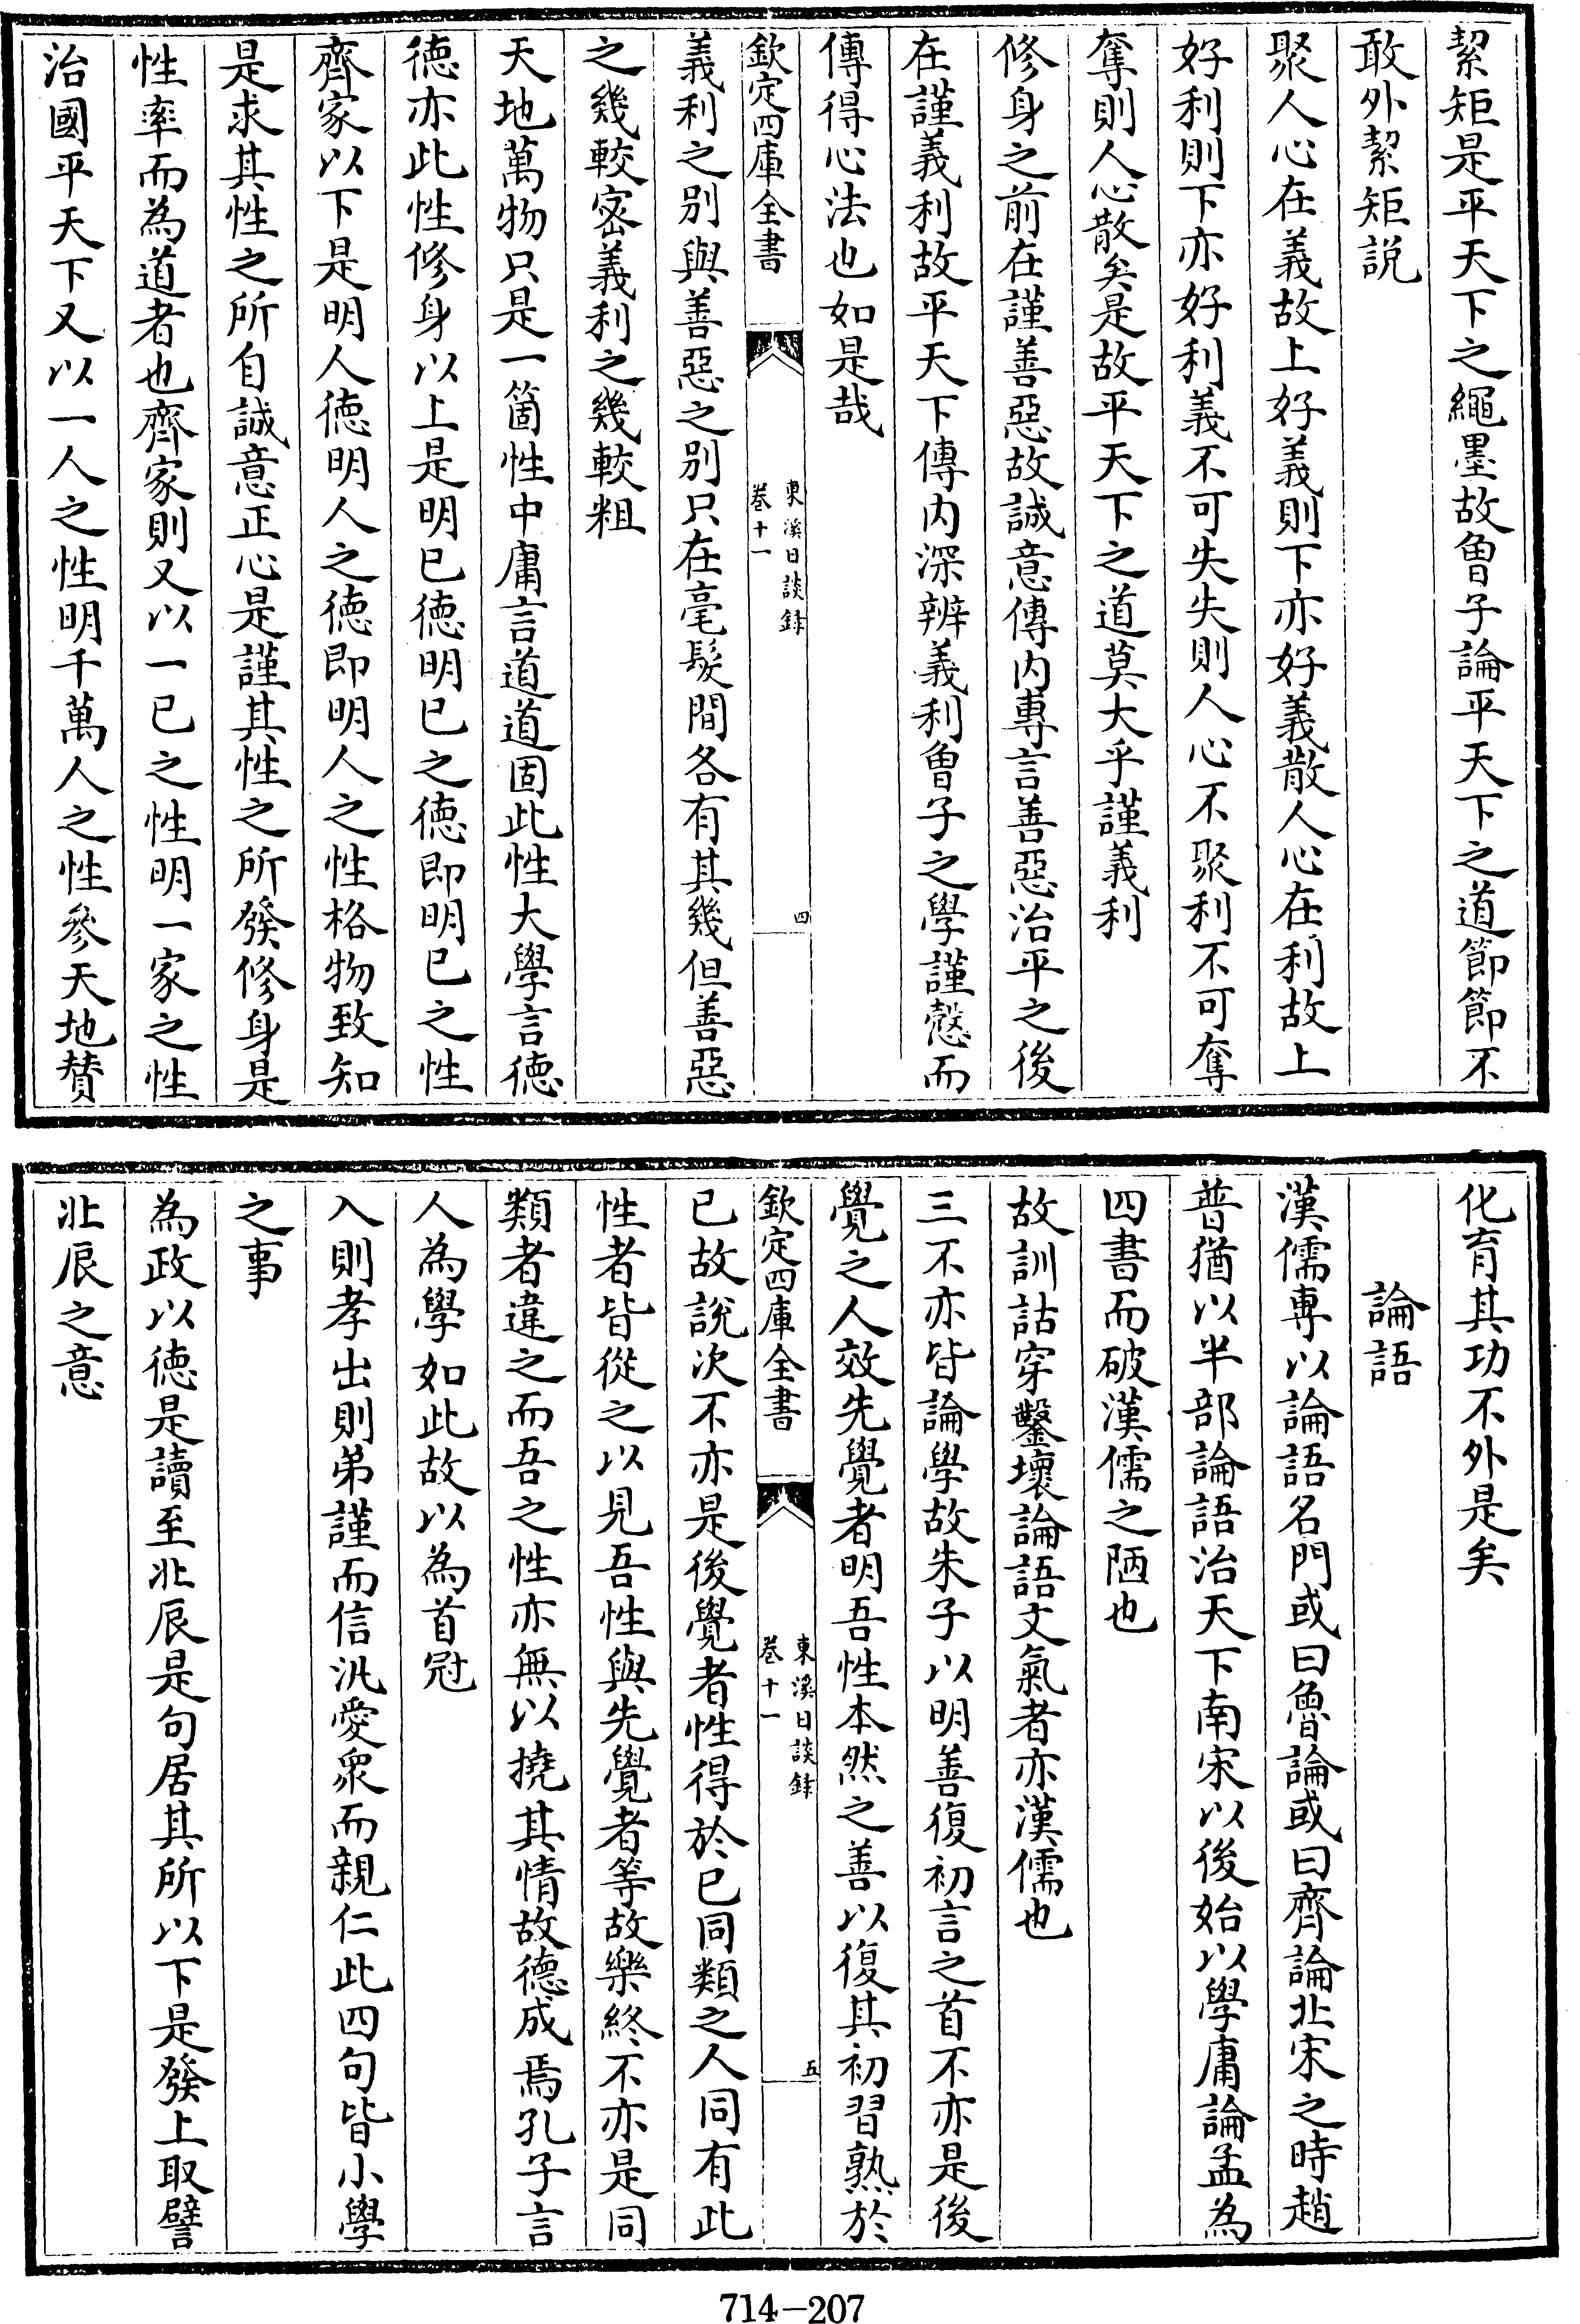 絜矩是平天下之繩墨故曾子論平天下之道節節不
敢外絜矩説
聚人心在義故上好義則下亦好義散人心在利故上
好利則下亦好利義不可失失則人心不聚利不可奪
奪則人心散矣是故平天下之道莫大乎謹義利
修身之前在謹善惡故誠意傳内專言善惡治平之後
在謹義利故平天下傳内深辨義利曾子之學謹慤而
傳得心法也如是哉
欽定四庫全書
東溪日談録
卷十一
四
義利之别與善惡之别只在毫髮間各有其幾但善惡
之幾較密義利之幾較粗
天地萬物只是一箇性中庸言道道固此性大學言徳
徳亦此性修身以上是明已徳明已之徳即明已之性
齊家以下是明人徳明人之徳即明人之性格物致知
是求其性之所自誠意正心是謹其性之所發修身是
性率而為道者也齊家則又以一已之性明一家之性
治國平天下又以一人之性明千萬人之性參天地賛
化育其功不外是矣
論語
漢儒專以論語名門或曰魯論或曰齊論北宋之時趙
普猶以半部論語治天下南宋以後始以學庸論孟為
四書而破漢儒之陋也
故訓詁穿鑿壞論語文氣者亦漢儒也
三不亦皆論學故朱子以明善復初言之首不亦是後
覺之人效先覺者明吾性本然之善以復其初習熟於
已故説次不亦是後覺者性得於已同類之人同有此
性者皆從之以見吾性與先覺者等故樂終不亦是同
類者違之而吾之性亦無以撓其情故德成焉孔子言
人為學如此故以為首冠
入則孝出則弟謹而信汎愛衆而親仁此四句皆小學
之事
為政以徳是讀至北辰是句居其所以下是發上取譬
北辰之意
欽定四庫全書
東溪日談録
卷十一
五
714-207